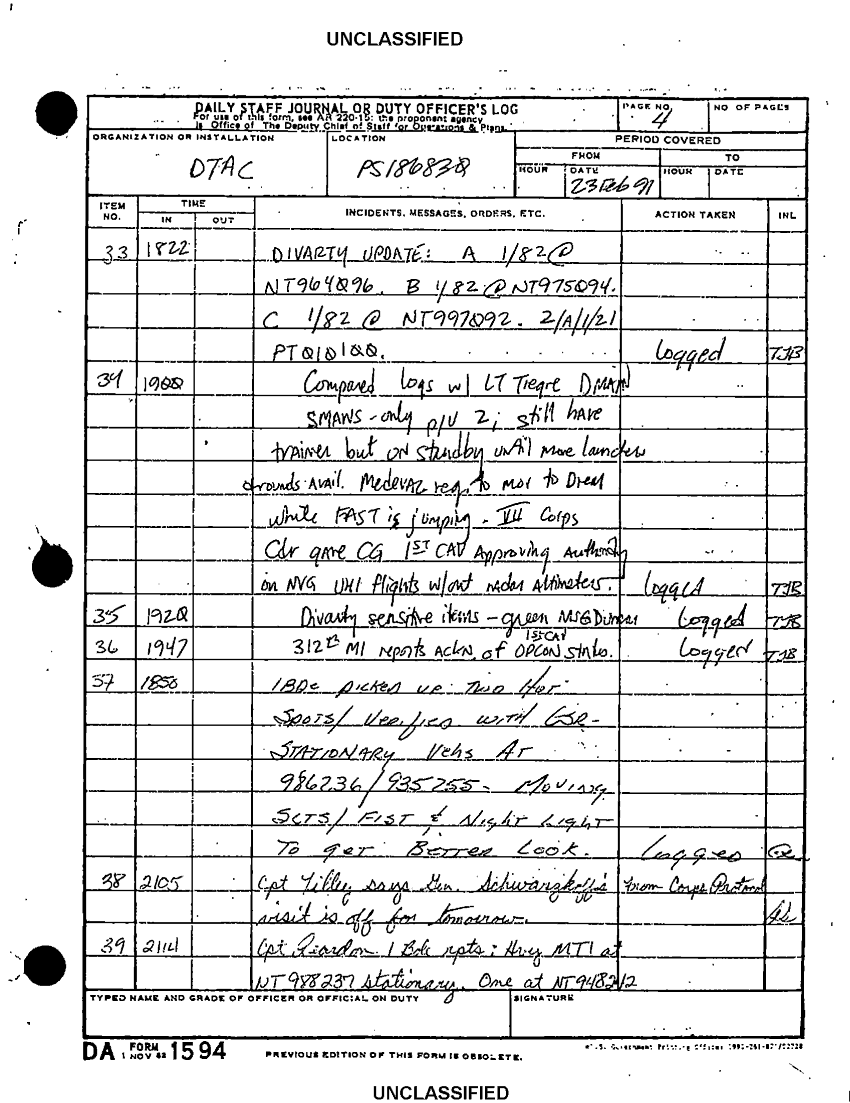 UNCLASSIFIED
DAILY STAFF JOURNAL OR DUTY OFFICER'S LOG
For use of this form, see AR 220-15; the proponent agency
is Office of The Deputy Chief of Staff for Operations & Plans.
PAGE NO. 4
NO OF PAGES
ORGANIZATION OR INSTALLATION
DTAC
LOCATION
PS186838
PERIOD COVERED
FROM
TO
HOUR
DATE
23 Feb 91
HOUR
DATE
ITEM NO.
TIME
IN
OUT
INCIDENTS, MESSAGES, ORDERS, ETC.
ACTION TAKEN
INL
33 1822 DIVARTY UPDATE: A 1/82 @
NT964096. B 1/82 @ NT975094.
C 1/82 @ NT997092. 2/A/1/21
PT010100. logged TJB
34 1900 Compared logs w/ LT Tiegre DMAIN
SMAWS - only p/u 2; still have
trainer but on standby until more launchers
& rounds avail. Medevac req. to mov to Drem
while FAST is jumping - VII Corps
Cdr gave CG 1ST CAV Approving Authority
on NVG UH1 flights w/out radar Altimeters. logged TJB
35 1920 Divarty sensitive items - green MSG Duncan Logged TJB
36 1947 312th MI reports ackn. of OPCON 1ST CAV status. Logged TJB
37 1850 1BDE picked up two Hot
Spots/ Verified with GSR -
STATIONARY Vehs AT
986236/935255 - Moving
SCTS/ FIST & Night Light
To get Better Look. Logged
38 2105 Cpt Tilley says Gen. Schwarzkoff's from Corps Protocol
visit is off for tomorrow.
39 2114 Cpt Riardon 1 Bde rpts: Hvy MTI at
NT988237 stationary. One at NT948212
TYPED NAME AND GRADE OF OFFICER OR OFFICIAL ON DUTY
SIGNATURE
DA FORM 1 NOV 62 1594
PREVIOUS EDITION OF THIS FORM IS OBSOLETE.
UNCLASSIFIED